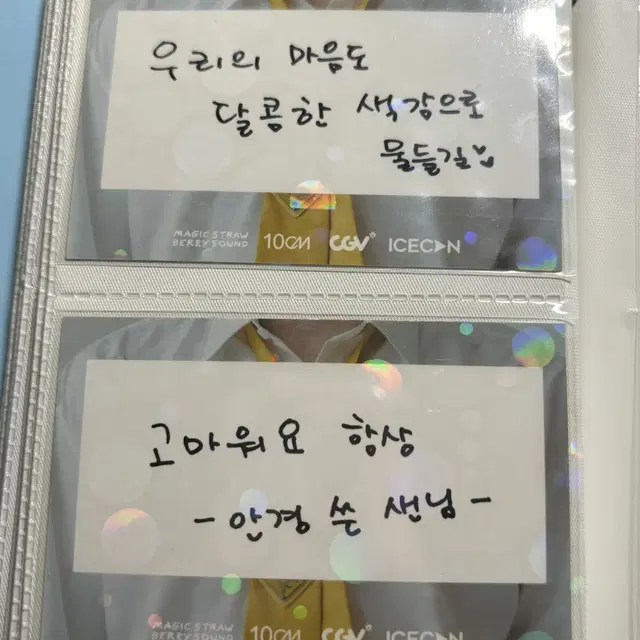 우리의 마음도
달콤한 색감으로
물들길
MAGIC STRAW
BERRY SOUND 10CM CGV ICECON
고마워요 항상
- 안경 쓴 선님 -
MAGIC STRAW
BERRY SOUND 10CM CGV ICECON